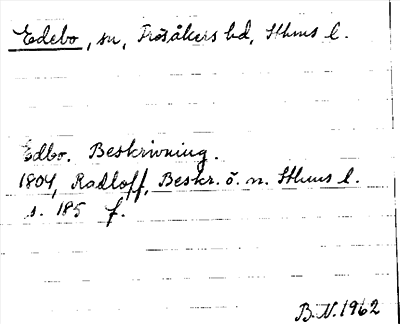 Edebo, sn, Frösåkers hd, Sthms l.
Edbo. Beskrivning.
1804, Radloff, Beskr. ö. n. Sthms l.
s. 185 f.
B.N. 1962